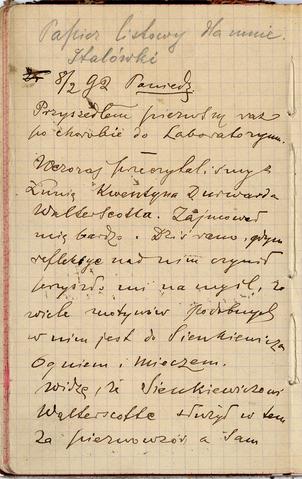 Papier listowy dla mnie.
Stalówki
8/2 92 Poniedz.
Przyszedłem pierwszy raz
po chorobie do Laboratoryum.
Wczoraj przeczytaliśmy z
Lunią Kwentyna Durwarda
Walterscotta. Zajmował
mię bardzo. Dziś rano, gdym
refleksye nad nim czynił
przyszło mi na myśl, że
wiele motywów podobnych
w nim jest do Sienkiewicza
Ogniem i Mieczem.
Widzę, że Sienkiewiczowi
Walterscott służył w tem
za pierwowzór a Sam